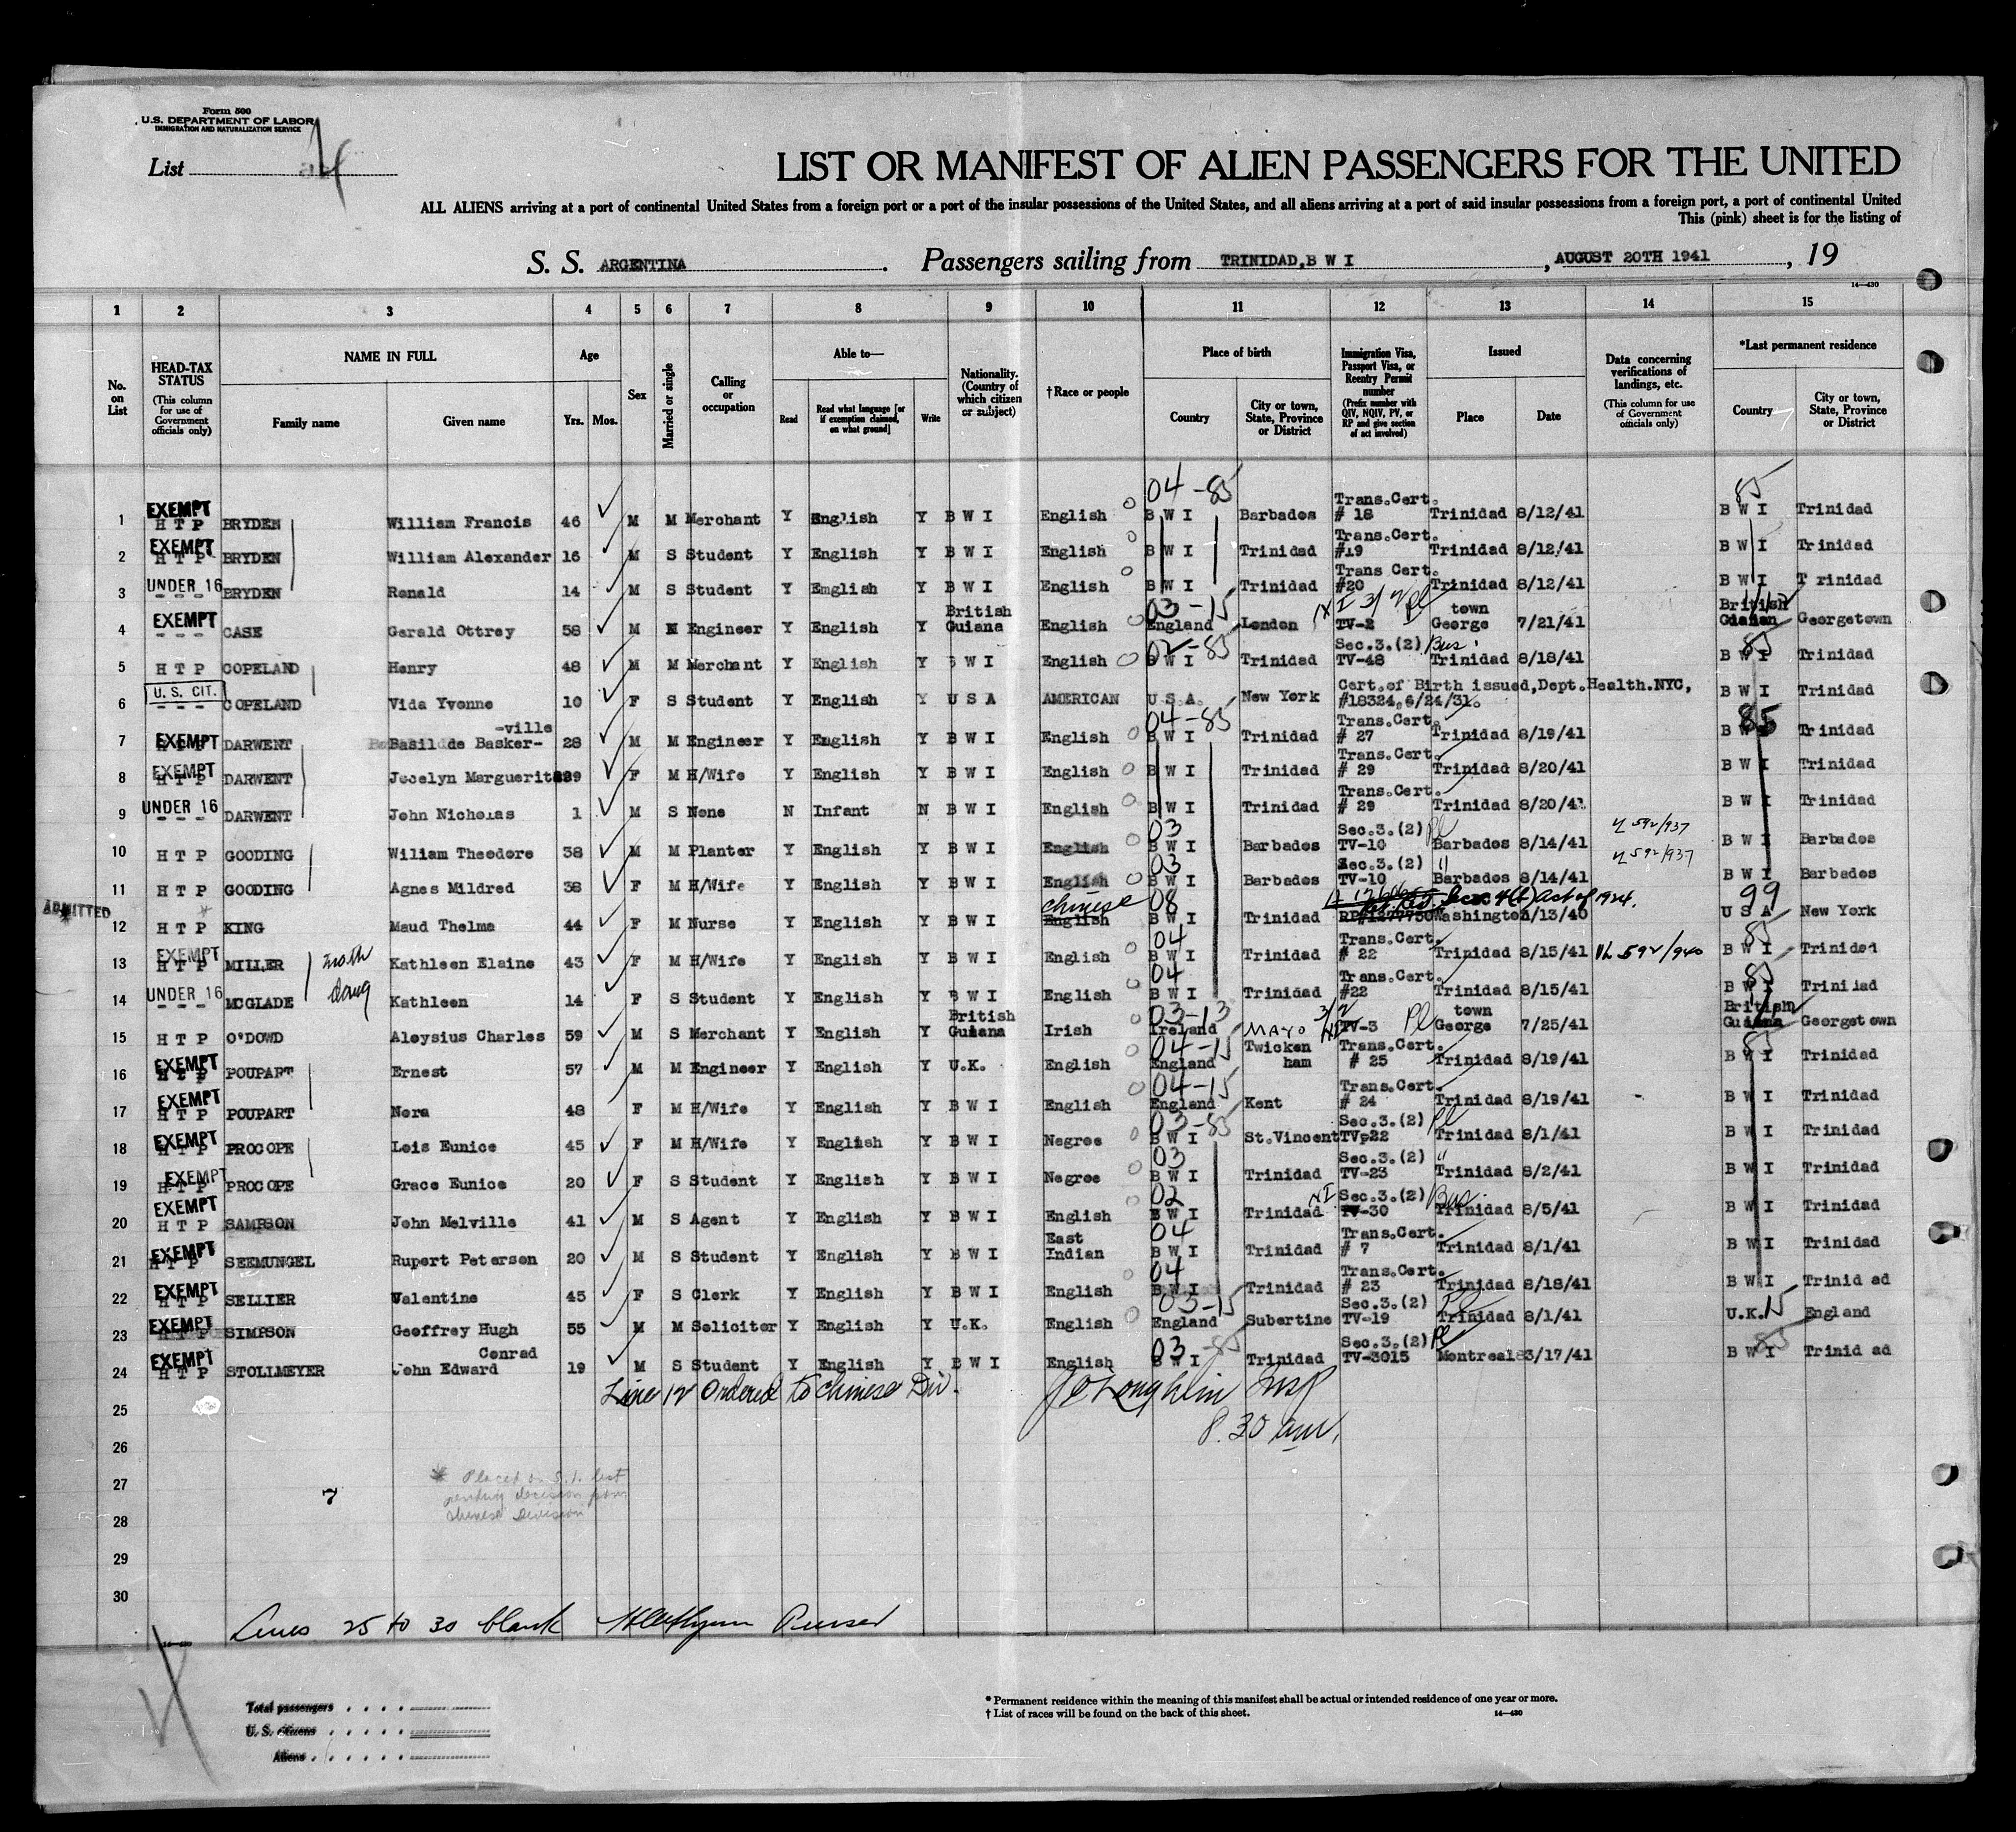 Form 500
U.S. DEPARTMENT OF LABOR
IMMIGRATION AND NATURALIZATION SERVICE
List 4
LIST OR MANIFEST OF ALIEN PASSENGERS FOR THE UNITED
ALL ALIENS arriving at a port of continental United States from a foreign port or a port of the insular possessions of the United States, and all aliens arriving at a port of said insular possessions from a foreign port, a port of continental United
This (pink) sheet is for the listing of
S. S. ARGENTINA. Passengers sailing from TRINIDAD, B W I, AUGUST 20TH 1941, 19
14—430
1 2 3 4 5 6 7 8 9 10 11 12 13 14 15
No. on List
HEAD-TAX STATUS (This column for use of Government officials only)
NAME IN FULL Family name Given name
Age Yrs. Mos.
Sex
Married or single
Calling or occupation
Able to— Read Read what language [or if exemption claimed, on what ground] Write
Nationality. (Country of which citizen or subject)
†Race or people
Place of birth Country City or town, State, Province or District
Immigration Visa, Passport Visa, or Reentry Permit number (Prefix number with QIV, NQIV, PV, or RP and give section of act involved)
Issued Place Date
Data concerning verifications of landings, etc. (This column for use of Government officials only)
*Last permanent residence Country City or town, State, Province or District
1 EXEMPT H T P BRYDEN William Francis 46 M M Merchant Y English Y B W I English 04-85 B W I Barbados Trans.Cert. # 18 Trinidad 8/12/41 85 B W I Trinidad
2 EXEMPT H T P BRYDEN William Alexander 16 M S Student Y English Y B W I English B W I Trinidad Trans.Cert. #19 Trinidad 8/12/41 B W I Trinidad
3 UNDER 16 - - - BRYDEN Ronald 14 M S Student Y Emglish Y B W I English B W I Trinidad Trans Cert. #20 Trinidad 8/12/41 B W I T rinidad
4 EXEMPT - - - CASE Gerald Ottrey 58 M M Engineer Y English Y British Guiana English 03-15 England London TV-2 George town 7/21/41 British Georgetown
5 H T P COPELAND Henry 48 M M Merchant Y English Y B W I English 02-85 B W I Trinidad Sec.3.(2) Bus. TV-48 Trinidad 8/18/41 85 B W I Trinidad
6 U. S. CIT. - - - COPELAND Vida Yvonne 10 F S Student Y English Y U S A AMERICAN U.S.A. New York Cert.of Birth issued,Dept.Health.NYC, #18324,6/24/31. B W I Trinidad
7 EXEMPT H T P DARWENT Basil de Basker-ville 28 M M Engineer Y English Y B W I English 04-85 B W I Trinidad Trans.Cert. # 27 Trinidad 8/19/41 85 B W I Trinidad
8 EXEMPT H T P DARWENT Jocelyn Marguerite 29 F M H/Wife Y English Y B W I English B W I Trinidad Trans.Cert. # 29 Trinidad 8/20/41 B W I Trinidad
9 UNDER 16 - - - DARWENT John Nicholas 1 M S None N Infant N B W I English B W I Trinidad Trans.Cert. # 29 Trinidad 8/20/41 B W I Trinidad
10 H T P GOODING Wiliam Theodore 38 M M Planter Y English Y B W I English 03 B W I Barbados Sec.3.(2) Pl TV-10 Barbados 8/14/41 592/937 B W I Barbados
11 H T P GOODING Agnes Mildred 38 F M H/Wife Y English Y B W I English 03 B W I Barbados Sec.3.(2) " TV-10 Barbados 8/14/41 592/937 B W I Barbados
ADMITTED
12 H T P KING Maud Thelma 44 F M Nurse Y English Y B W I Chinese English 08 B W I Trinidad RP#1277750 Sec 4(b) Act of 1924. Washington 99 U S A New York
13 EXEMPT H T P MILLER moth Kathleen Elaine 43 F M H/Wife Y English Y B W I English 04 B W I Trinidad Trans.Cert. # 22 Trinidad 8/15/41 VL 592/940 85 B W I Trinidad
14 UNDER 16 - - - MCGLADE daug Kathleen 14 F S Student Y English Y B W I English 04 B W I Trinidad Trans.Cert. #22 Trinidad 8/15/41 85 B W I Trinidad
15 H T P O'DOWD Aloysius Charles 59 M S Merchant Y English Y British Guiana Irish 03-13 Ireland MAYO TV-3 Pl George town 7/25/41 British Guiana Georgetown
16 EXEMPT H T P POUPART Ernest 57 M M Engineer Y English Y U.K. English 04-15 England Twicken ham Trans.Cert. # 25 Trinidad 8/19/41 85 B W I Trinidad
17 EXEMPT H T P POUPART Nora 48 F M H/Wife Y English Y B W I English 04-15 England Kent Trans.Cert. # 24 Trinidad 8/19/41 B W I Trinidad
18 EXEMPT H T P PROCOPE Lois Eunice 45 F M H/Wife Y English Y B W I Negroe 03-85 B W I St.Vincent Sec.3.(2) Pl TVp22 Trinidad 8/1/41 B W I Trinidad
19 EXEMPT H T P PROCOPE Grace Eunice 20 F S Student Y English Y B W I Negroe 03 B W I Trinidad Sec.3.(2) " TV-23 Trinidad 8/2/41 B W I Trinidad
20 EXEMPT H T P SAMPSON John Melville 41 M S Agent Y English Y B W I English 02 B W I Trinidad NI Sec.3.(2) Bus. TV-30 Trinidad 8/5/41 B W I Trinidad
21 EXEMPT H T P SEEMUNGEL Rupert Peterson 20 M S Student Y English Y B W I East Indian 04 B W I Trinidad Trans.Cert. # 7 Trinidad 8/1/41 B W I Trinidad
22 EXEMPT H T P SELLIER Valentine 45 F S Clerk Y English Y B W I English 04 B W I Trinidad Trans.Cert. # 23 Trinidad 8/18/41 B W I Trinid ad
23 EXEMPT H T P SIMPSON Geoffrey Hugh 55 M M Solicitor Y English Y U.K. English 03-15 England Subertine Sec.3.(2) Pl TV-19 Trinidad 8/1/41 U.K. 15 England
24 EXEMPT H T P STOLLMEYER John Edward Conrad 19 M S Student Y English Y B W I English 03-85 B W I Trinidad Sec.3.(2) Pl TV-3015 Montreal 3/17/41 85 B W I Trinid ad
Line 12 Ordered to Chinese Div. J O'Loughlin Insp
8.30 am.
25
26
27
* Placed on S.I. list
pending decision from
Chinese Division
28
29
30
Lines 25 to 30 blank Purser
14—430
Total passengers
U. S. citizens
Aliens
* Permanent residence within the meaning of this manifest shall be actual or intended residence of one year or more.
† List of races will be found on the back of this sheet. 14—430